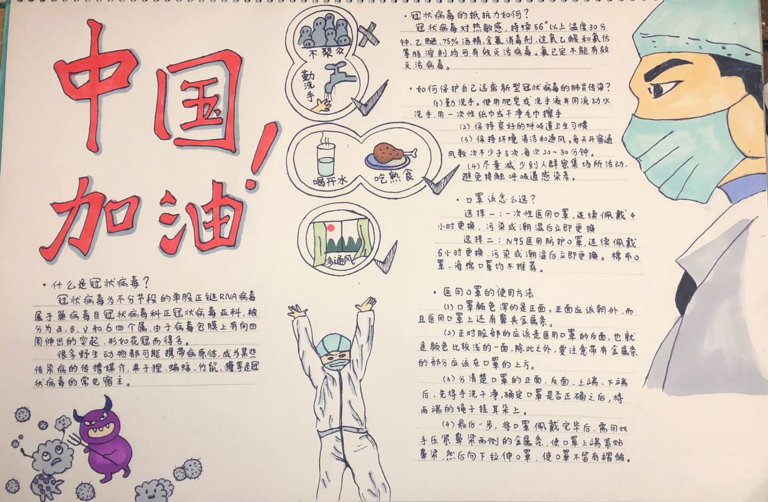 中国
加油!
·什么是冠状病毒?
冠状病毒为不分节段的单股正链RNA病毒
属于巢病毒目冠状病毒科正冠状病毒亚科,被
分为α、β、γ和δ四个属,由于病毒包膜上有向四
周伸出的突起,形如花冠而得名。
很多野生动物都可能携带病原体,成为某些
传染病的传播媒介,果子狸,蝙蝠,竹鼠,獾等是冠
状病毒的常见宿主。
不聚众
勤洗手
喝开水
吃熟食
多通风
·冠状病毒的抵抗力如何?
冠状病毒对热敏感,持续56°以上温度30分
钟、乙醚、75%酒精、含氯消毒剂、过氧乙酸和氯仿
等脂溶剂均可有效灭活病毒。氯己定不能有效
灭活病毒。
·如何保护自己远离新型冠状病毒的肺炎传染?
(1)勤洗手。使用肥皂或洗手液并用流动水
洗手,用一次性纸巾或干净毛巾擦手
(2)保持良好的呼吸道卫生习惯
(3)保持环境清洁和通风。每天开窗通
风数次不少于3次,每次20~30分钟。
(4)尽量减少到人群密集场所活动,
避免接触呼吸道感染者。
·口罩该怎么选?
选择一:一次性医用口罩,连续佩戴4
小时更换,污染或潮湿后立即更换
选择二:N95医用防护口罩,连续佩戴
6小时更换,污染或潮湿后立即更换。棉布口
罩,海绵口罩均不推荐。
·医用口罩的使用方法
(1)口罩颜色深的是正面,正面应该朝外,而
且医用口罩上还有鼻夹金属条。
(2)正对脸部的应该是医用口罩的反面,也就
是颜色比较浅的一面,除此之外,要注意带有金属条
的部分应该在口罩的上方。
(3)分清楚口罩的正面,反面,上端,下端
后,先将手洗干净,确定口罩是否正确之后,将
两端的绳子挂耳朵上。
(4)最后一步,将口罩佩戴完毕后,需用双
手压紧鼻梁两侧的金属条,使口罩上端紧贴
鼻梁,然后向下拉伸口罩,使口罩不留有褶皱。